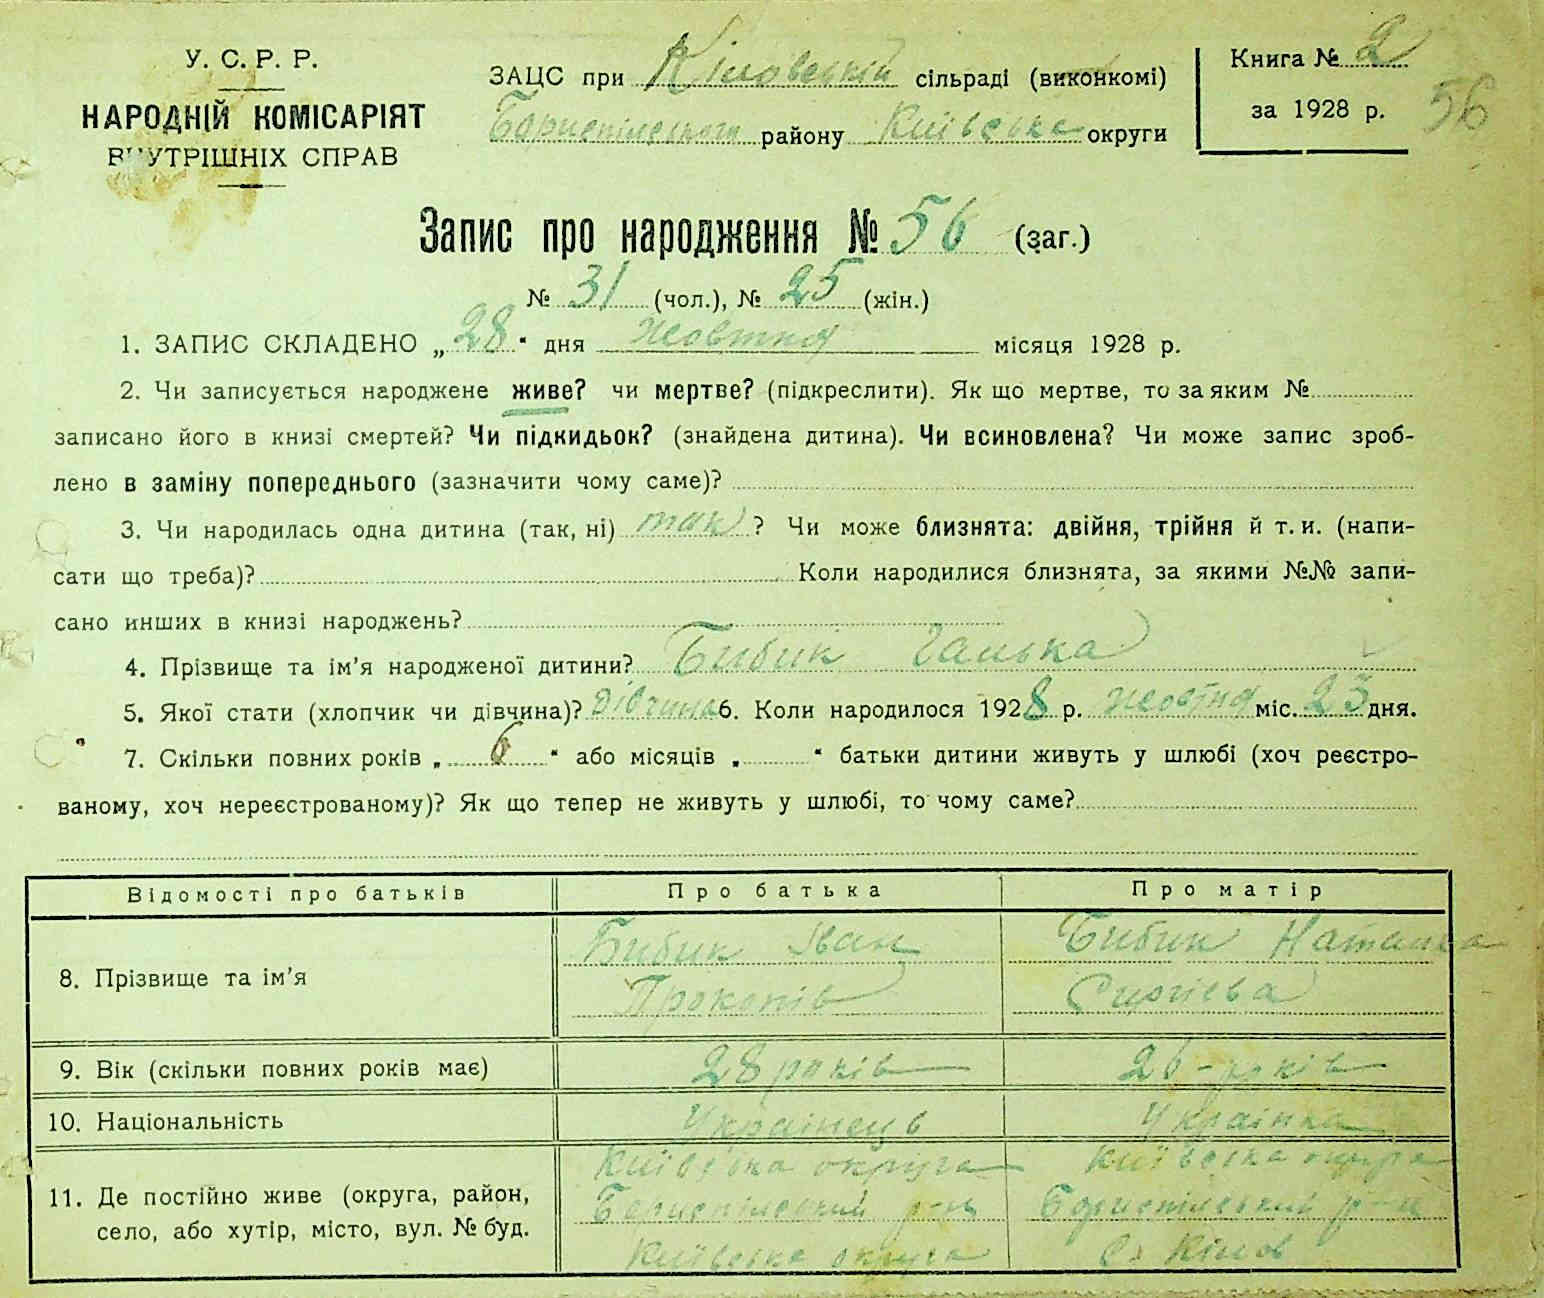 У. С. Р. Р.
НАРОДНІЙ КОМІСАРІЯТ
ВНУТРІШНІХ СПРАВ
ЗАЦС при Кіловській сільраді (виконкомі)
Бориспільського району Київська округи
Книга № 2
за 1928 р.
56
Запис про народження № 56 (заг.)
№ 31 (чол.), № 25 (жін.)
1. ЗАПИС СКЛАДЕНО „28“ дня Жовтня місяця 1928 р.
2. Чи записується народжене живе? чи мертве? (підкреслити). Як що мертве, то за яким №
записано його в книзі смертей? Чи підкидьок? (знайдена дитина). Чи всиновлена? Чи може запис зроб-
лено в заміну попереднього (зазначити чому саме)?
3. Чи народилась одна дитина (так, ні) так? Чи може близнята: двійня, трійня й т. и. (напи-
сати що треба)? Коли народилися близнята, за якими №№ запи-
сано инших в книзі народжень?
4. Прізвище та ім’я народженої дитини? Бибик Галька
5. Якої стати (хлопчик чи дівчина)? Дівчина 6. Коли народилося 1928 р. жовтня міс. 23 дня.
7. Скільки повних років „6“ або місяців „ “ батьки дитини живуть у шлюбі (хоч реєстро-
ваному, хоч нереєстрованому)? Як що тепер не живуть у шлюбі, то чому саме?
Відомості про батьків Про батька Про матір
8. Прізвище та ім’я Бибик Іван Бибик Наталка
Прокопів Сергієва
9. Вік (скільки повних років має) 28 років 26 - років
10. Національність Українець Українка
Київська округа Київська округа
11. Де постійно живе (округа, район, Бориспільський р-н Бориспільський р-н
село, або хутір, місто, вул. № буд. Київська округа С. Кілов